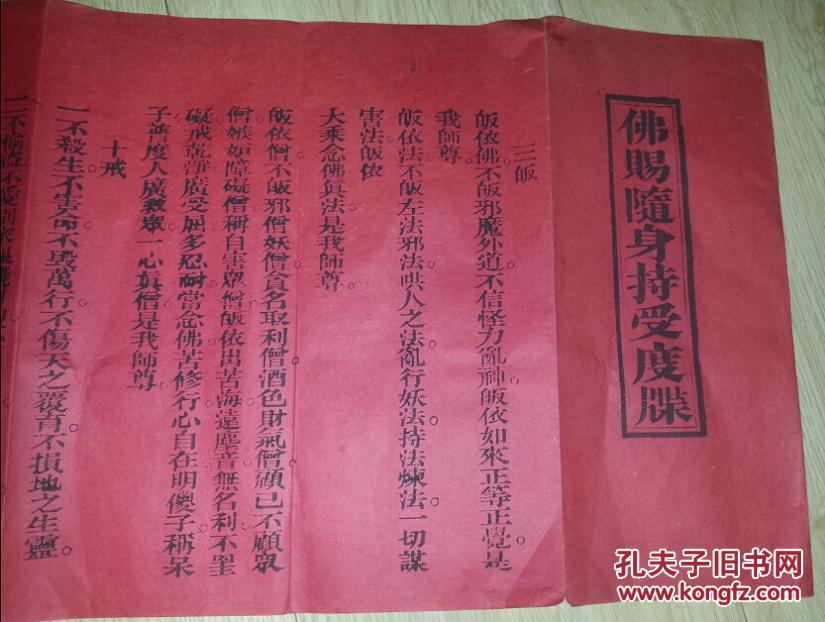 佛賜隨身持受度牒
三皈
皈依佛不皈邪魔外道不信怪力亂神皈依如來正等正覺是
我師尊
皈依法不皈左法邪法哄人之法亂行妖法持法煉法一切謀
害法皈依
大乘念佛眞法是我師尊
皈依僧不皈邪僧妖僧貪名取利僧酒色財氣僧顧已不顧眾
僧嫉妬障礙僧稱自害眾僧皈依出苦海遠塵音無名利不罣
礙戒乾淨廣受屈多忍耐當念佛苦修行心自在明傻子稱呆
子普度人廣救眾一心眞僧是我師尊
十戒
一不殺生不害命不毀萬行不傷天之覆育不損地之生靈
二不偷盜不
孔夫子旧书网
www.kongfz.com